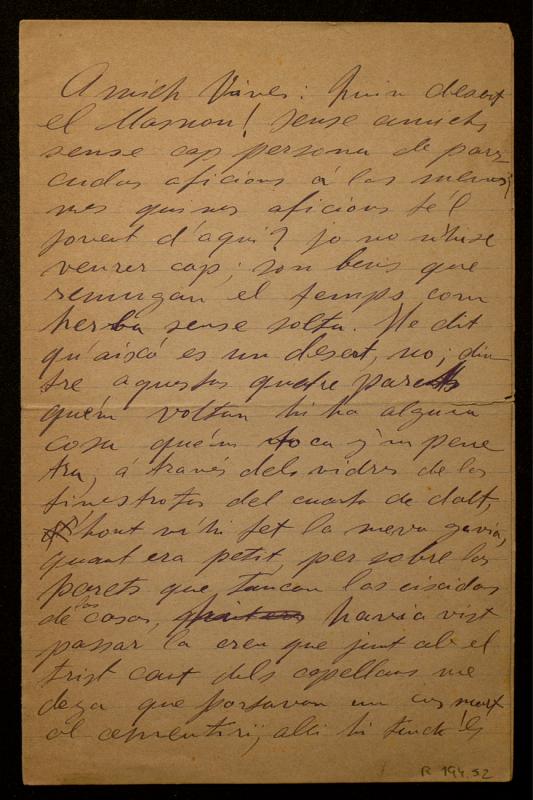 Amich Vives: Quin desert
el Masnou! Sense amichs
sense cap persona de pars-
cudas aficions á las mevas;
mes quinas aficions té'l
jovent d'aquí? jo no n'hi sé
veurer cap; son bens que
remugan el temps com
herba sense solta. He dit
qu'aixó es un desert, no; din-
tre aquestas quatre parets
quém voltan hi ha alguna
cosa quém toca y'm pene
tra, á través dels vidres de las
finestrotas del cuarto de dalt,
hont m'hi fet la meva gavia,
quant era petit, per sobre las
parets que tancan las eixidas
de las casas, havia vist
passar la creu que junt ab el
trist cant dels capellans me
deya que portavan un cos mort
al cementiri; allí hi tinch els
R. 194.52